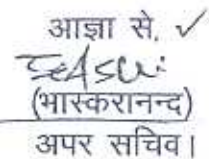 आज्ञा से,
(भास्करानन्द)
अपर सचिव।